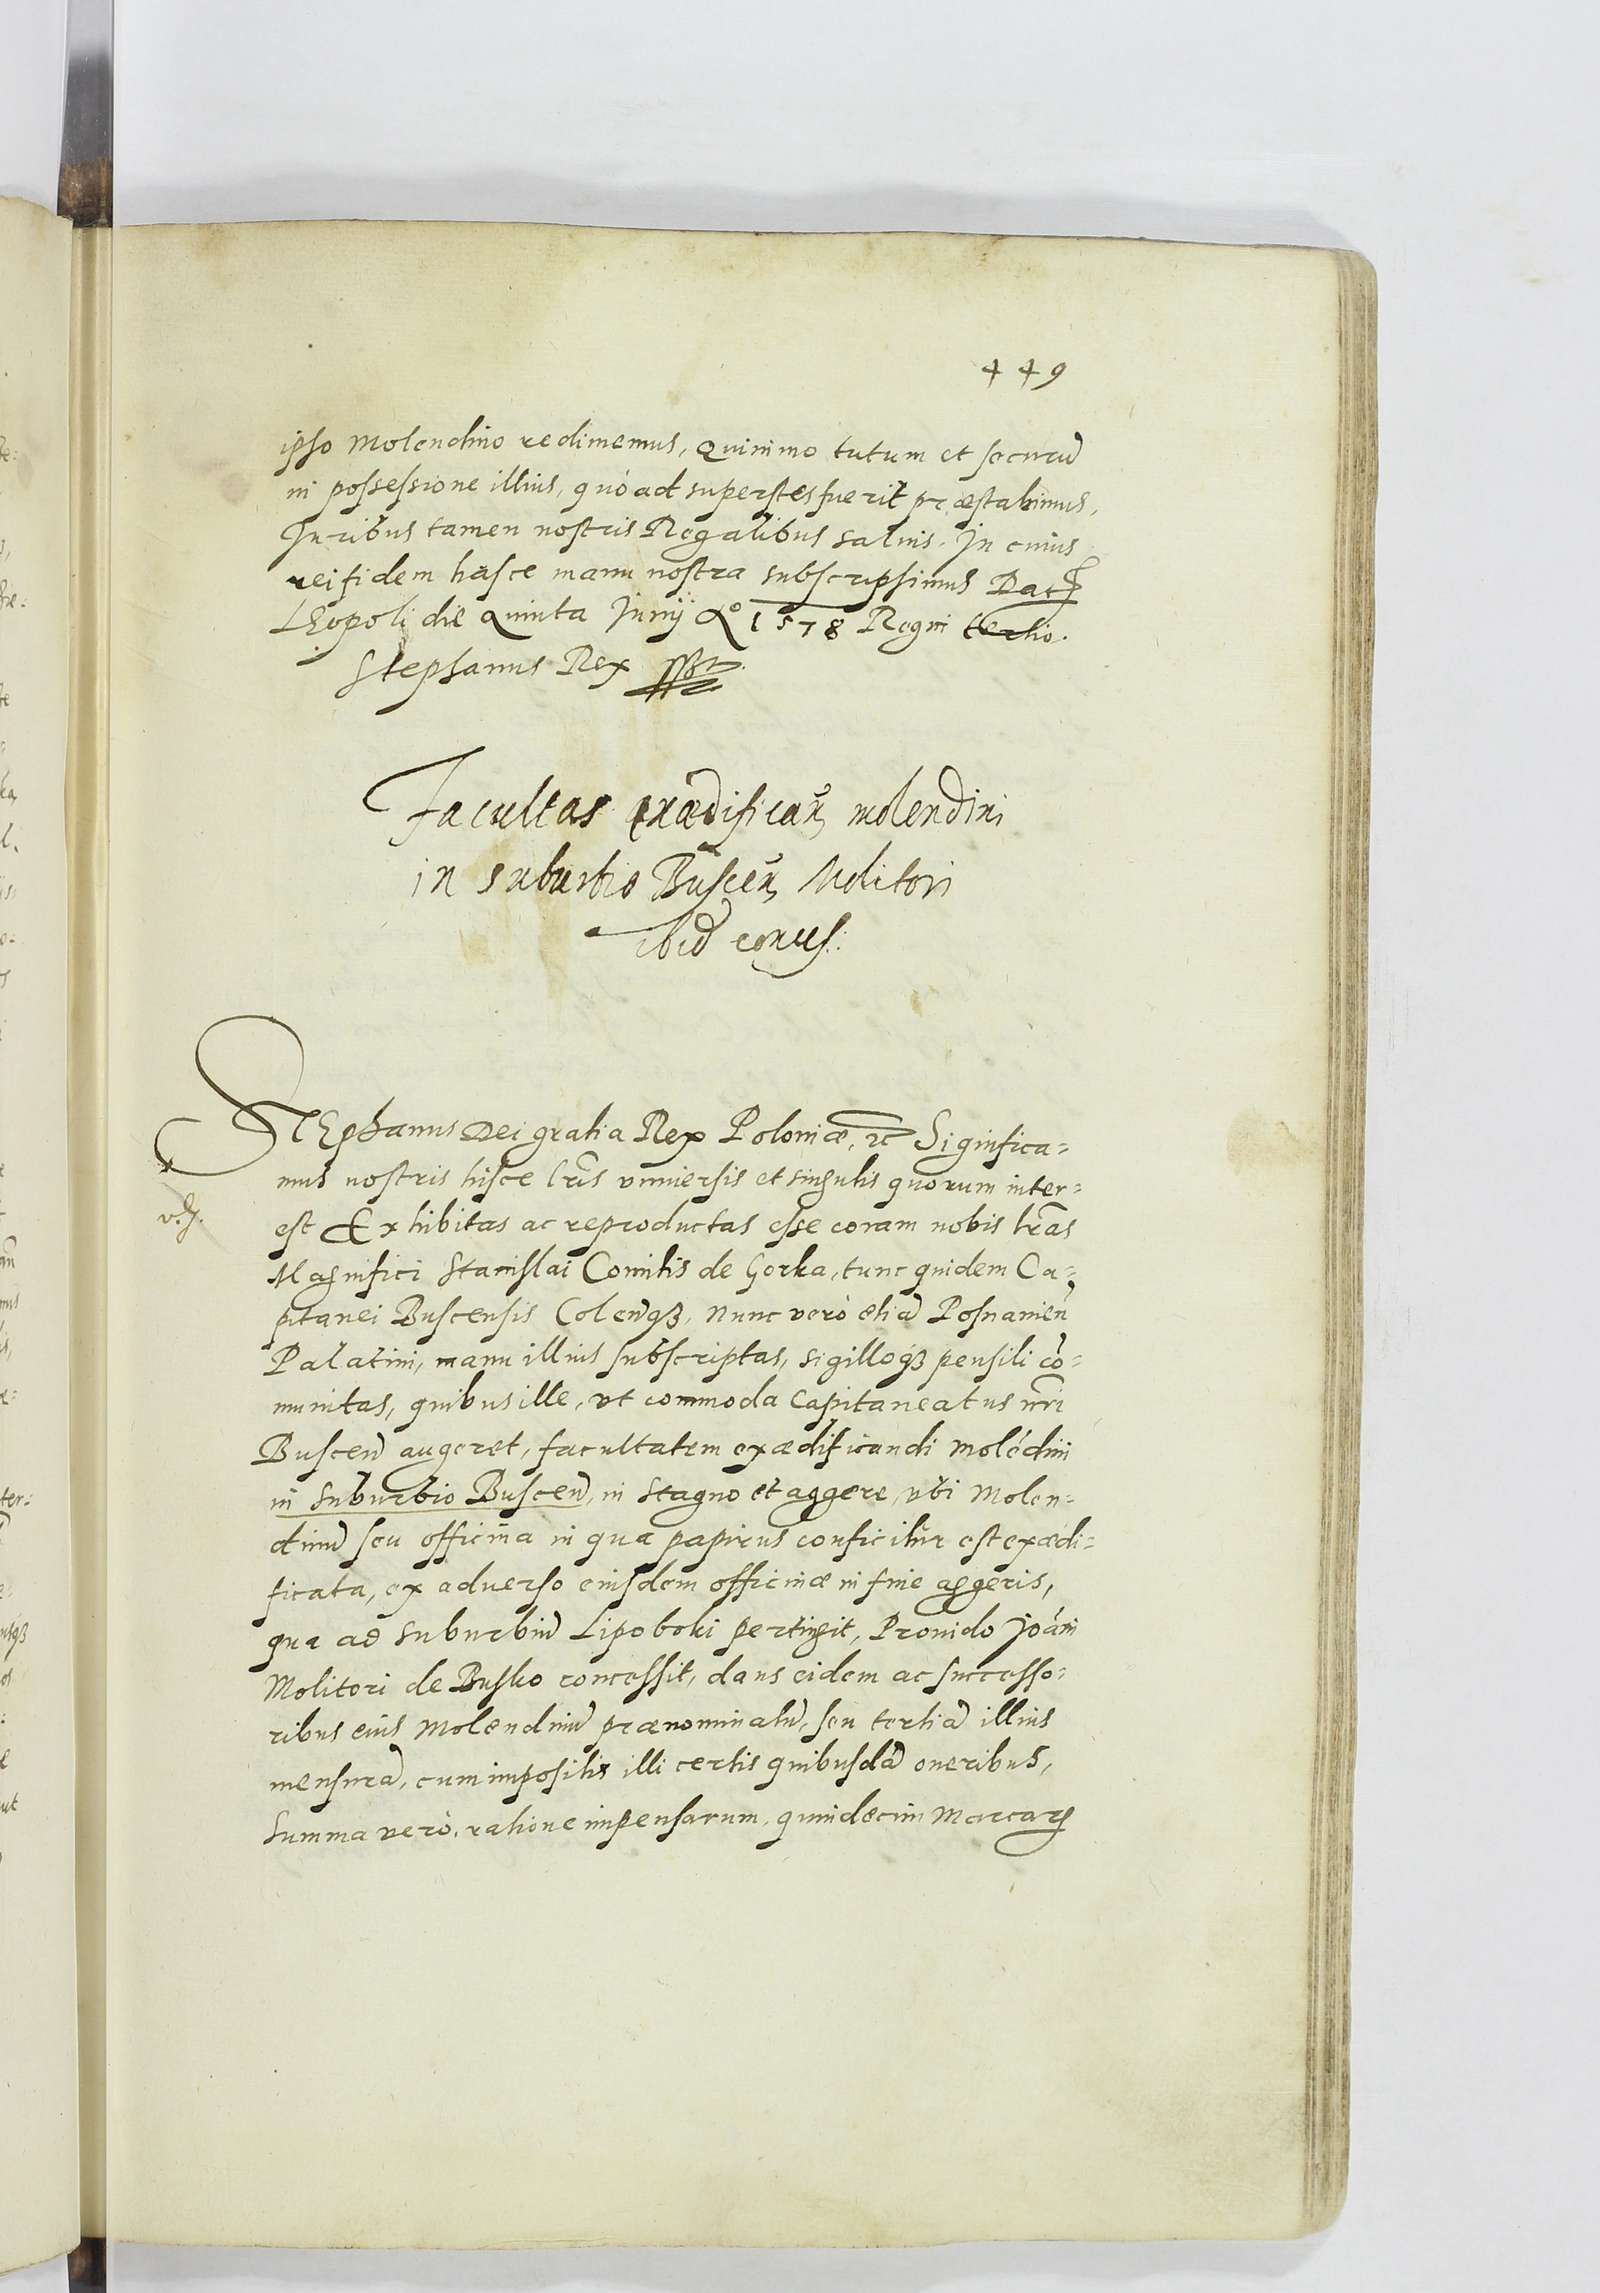 449
ipso Molendino redimemus, Quinimo tutum et securũ
in possessione illius, quò ad superstes fuerit præstabimus,
Juribus tamen nostris Regalibus saluis. In cuius
rei fidem hasce manu nostra subscripsimus Dat
LEopoli die Quinta Junij Ao 1578 Regni tertio.
Stephanus Rex sst
Facultas exædifican molendini
in suburbio Buscen Molitori
ibid conces:
STEphanus Dei gratia Rex Poloniæ, &c Significa=
mus nostris hisce lr̃is vniuersis et singulis quorum inter=
v.g.
est Exhibitas ac reproductas esse coram nobis lr̃as
Magnifici Stanislai Comitis de Gorka, tunc quidem Ca=
pitanei Buscensis Colenqȝ, nunc verò etiã Posnanien̄
Palatini, manu illius subscriptas, sigilloqȝ pensili cō=
munitas, quibus ille, vt commoda Capitaneatus nr̃i
Buscen̄ augeret, facultatem exædificandi molēdini
in suburbio Buscen̄, in stagno et aggere, vbi Molen=
dinũ seu officina in qua papirus conficitur est exædi=
ficata, ex aduerso eiusdem officinæ in fine aggeris,
qua ad suburbiũ Lipoboki pertingit, Prouido Joāni
Molitori de Busko concessit, dans eidem ac successo=
ribus eius Molendinũ prænominatũ, seu tertiã illius
mensurã, cum impositis illi certis quibusdã oneribus,
Summa verò, ratione impensarum, quindecim Marcarꝝ